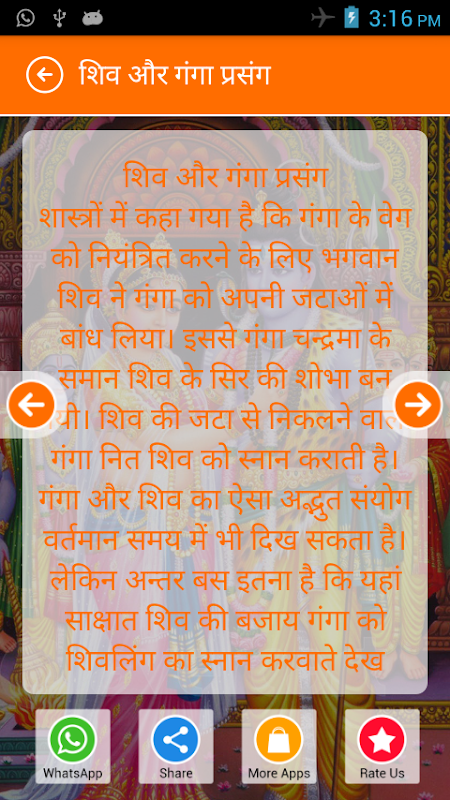 3:16 PM
शिव और गंगा प्रसंग
शिव और गंगा प्रसंग
शास्त्रों में कहा गया है कि गंगा के वेग
को नियंत्रित करने के लिए भगवान
शिव ने गंगा को अपनी जटाओं में
बांध लिया। इससे गंगा चन्द्रमा के
समान शिव के सिर की शोभा बन
शिव की जटा से निकलने
गंगा नित शिव को स्नान कराती है।
गंगा और शिव का ऐसा अद्भुत संयोग
वर्तमान समय में भी दिख सकता है।
लेकिन अन्तर बस इतना है कि यहां
साक्षात शिव की बजाय गंगा को
शिवलिंग का स्नान करवाते देख
WhatsApp Share More Apps Rate Us